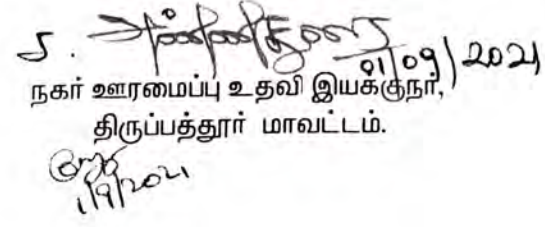 01/09/2021
நகர் ஊரமைப்பு உதவி இயக்குநர்,
திருப்பத்தூர் மாவட்டம்.
1/9/2021